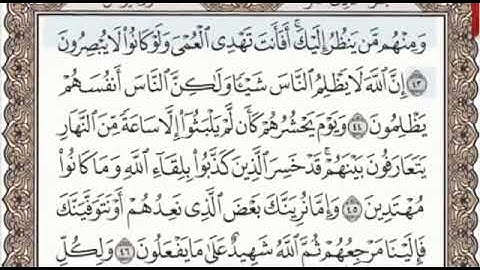 وَمِنْهُم مَّن يَنظُرُ إِلَيْكَ ۚ أَفَأَنتَ تَهْدِى الْعُمْىَ وَلَوْ كَانُوا۟ لَا يُبْصِرُونَ
٤٣ إِنَّ اللَّهَ لَا يَظْلِمُ النَّاسَ شَيْـًٔا وَلَٰكِنَّ النَّاسَ أَنفُسَهُمْ
يَظْلِمُونَ ٤٤ وَيَوْمَ يَحْشُرُهُمْ كَأَن لَّمْ يَلْبَثُوٓا۟ إِلَّا سَاعَةً مِّنَ النَّهَارِ
يَتَعَارَفُونَ بَيْنَهُمْ ۚ قَدْ خَسِرَ الَّذِينَ كَذَّبُوا۟ بِلِقَآءِ اللَّهِ وَمَا كَانُوا۟
مُهْتَدِينَ ٤٥ وَإِمَّا نُرِيَنَّكَ بَعْضَ الَّذِى نَعِدُهُمْ أَوْ نَتَوَفَّيَنَّكَ
فَإِلَيْنَا مَرْجِعُهُمْ ثُمَّ اللَّهُ شَهِيدٌ عَلَىٰ مَا يَفْعَلُونَ ٤٦ وَلِكُلِّ